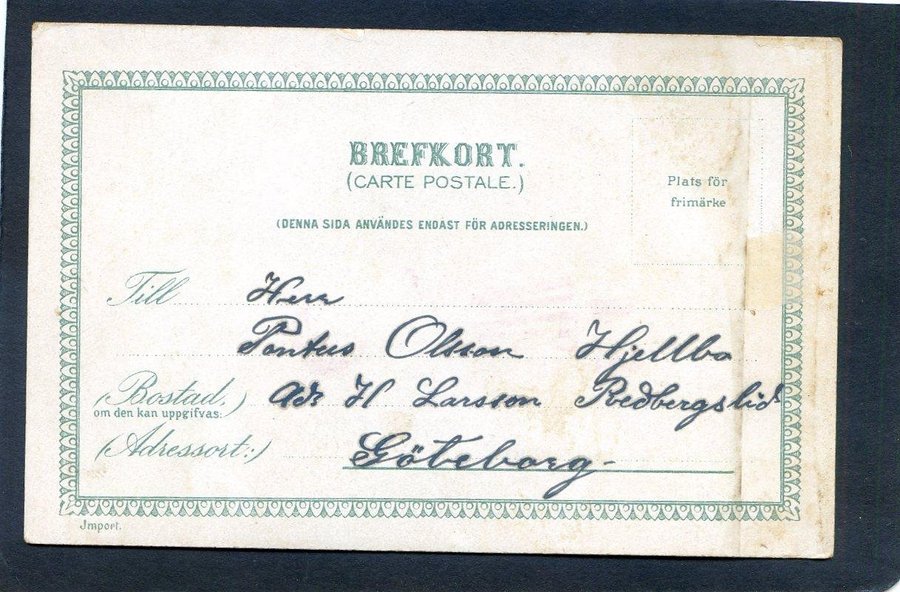 BREFKORT.
(CARTE POSTALE.)
Plats för
frimärke
(DENNA SIDA ANVÄNDES ENDAST FÖR ADRESSERINGEN.)
Till Herr
Pontus Olsson Hjellbo
(Bostad,)
om den kan uppgifvas:
adr H Larsson Redbergslid
(Adressort:) Göteborg-
Import.